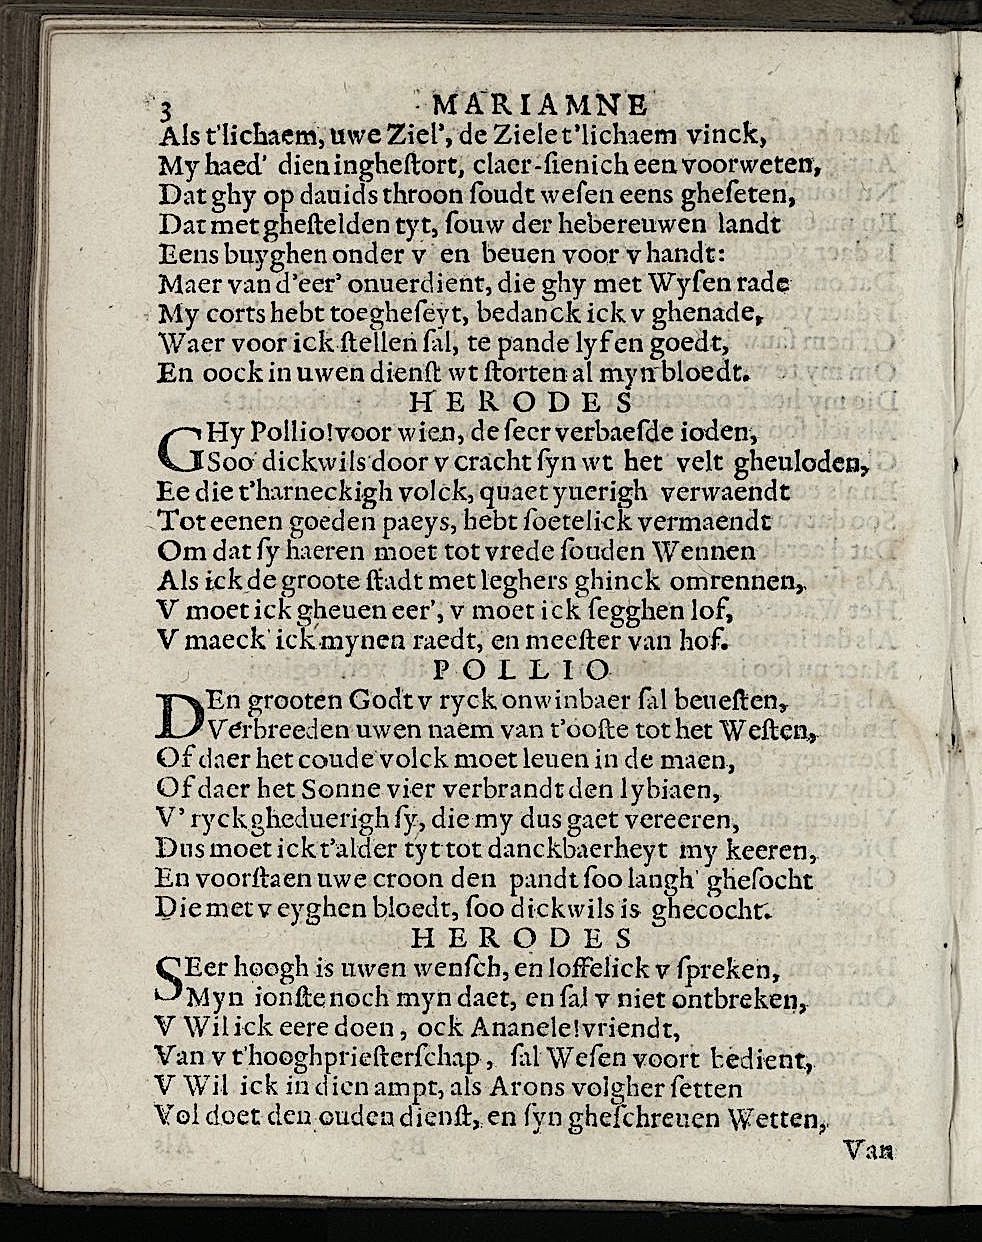 3 MARIAMNE
Als t'lichaem, uwe Ziel', de Ziele t'lichaem vinck,
My haed' dien ingheſtort, claer-ſienich een voorweten,
Dat ghy op dauids throon ſoudt weſen eens gheſeten,
Dat met gheſtelden tyt, ſouw der hebereuwen landt
Eens buyghen onder v en beuen voor v handt:
Maer van d'eer' onuerdient, die ghy met Wyſen rade
My corts hebt toegheſeyt, bedanck ick v ghenade,
Waer voor ick ſtellen ſal, te pande lyf en goedt,
En oock in uwen dienſt wt ſtorten al myn bloedt.
HERODES
GHy Pollio! voor wien, de ſeer verbaeſde ioden,
Soo dickwils door v cracht ſyn wt het velt gheuloden,
Ee die t'harneckigh volck, quaet yuerigh verwaendt
Tot eenen goeden paeys, hebt ſoetelick vermaendt
Om dat ſy haeren moet tot vrede ſouden Wennen
Als ick de groote ſtadt met leghers ghinck omrennen,
V moet ick gheuen eer', v moet ick ſegghen lof,
V maeck' ick mynen raedt, en meeſter van hof.
POLLIO
DEn grooten Godt v ryck onwinbaer ſal beueſten,
Verbreeden uwen naem van t'ooſte tot het Weſten,
Of daer het coude volck moet leuen in de maen,
Of daer het Sonne vier verbrandt den lybiaen,
V' ryck gheduerigh ſy, die my dus gaet vereeren,
Dus moet ick t'alder tyt tot danckbaerheyt my keeren,
En voorſtaen uwe croon den pandt ſoo langh' gheſocht
Die met v eyghen bloedt, ſoo dickwils is ghecocht.
HERODES
SEer hoogh is uwen wenſch, en loffelick v ſpreken,
Myn ionſte noch myn daet, en ſal v niet ontbreken,
V Wil ick eere doen, ock Ananele! vriendt,
Van v t'hooghprieſterſchap, ſal Weſen voort bedient,
V Wil ick in dien ampt, als Arons volgher ſetten
Vol doet den ouden dienſt, en ſyn gheſchreuen Wetten,
Van